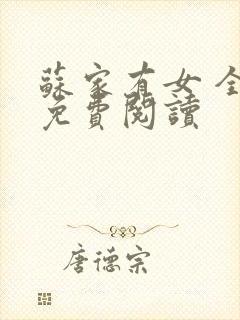 蘇家有女 全
免費閱讀
唐德宗